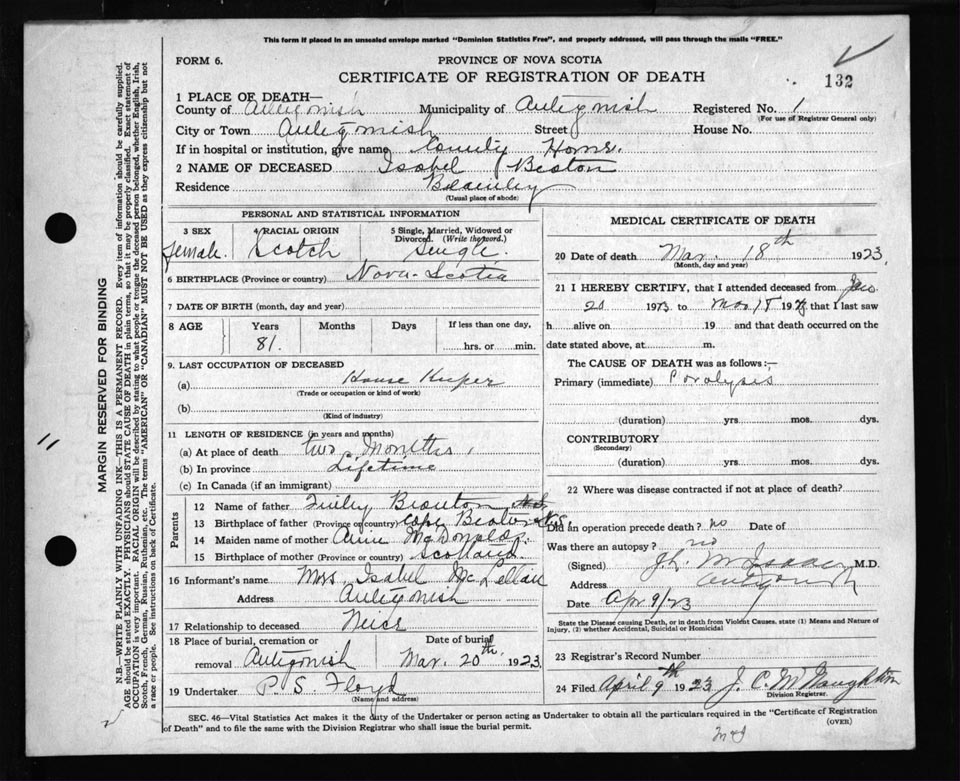 This form if placed in an unsealed envelope marked "Dominion Statistics Free", and properly addressed, will pass through the mails "FREE."
FORM 6.
PROVINCE OF NOVA SCOTIA
CERTIFICATE OF REGISTRATION OF DEATH
132
1 PLACE OF DEATH—
County of Antigonish Municipality of Antigonish Registered No. 1
(For use of Registrar General only)
City or Town Antigonish Street House No.
If in hospital or institution, give name County Home.
2 NAME OF DECEASED Isabel Beaton
Residence
(Usual place of abode)
PERSONAL AND STATISTICAL INFORMATION
3 SEX 4 RACIAL ORIGIN 5 Single, Married, Widowed or Divorced. (Write the word.)
female Scotch Single.
6 BIRTHPLACE (Province or country) Nova Scotia
7 DATE OF BIRTH (month, day and year)
8 AGE Years Months Days If less than one day,
81. hrs. or min.
9. LAST OCCUPATION OF DECEASED
(a) House Keeper
(Trade or occupation or kind of work)
(b)
(Kind of industry)
11 LENGTH OF RESIDENCE (in years and months)
(a) At place of death two Months,
(b) In province Lifetime
(c) In Canada (if an immigrant)
Parents
12 Name of father
13 Birthplace of father (Province or country)
14 Maiden name of mother Ann McDonald.
15 Birthplace of mother (Province or country) Scotland.
16 Informant's name Mrs Isabel McLellan
Address Antigonish
17 Relationship to deceased Neice
18 Place of burial, cremation or Date of burial
removal Antigonish Mar. 20th, 1923.
19 Undertaker P. S. Floyd
(Name and address)
MEDICAL CERTIFICATE OF DEATH
20 Date of death Mar. 18th 1923.
(Month, day and year)
21 I HEREBY CERTIFY, that I attended deceased from Jan
20 1923 to Mar 18 1923 that I last saw
h alive on 19 and that death occurred on the
date stated above, at m.
The CAUSE OF DEATH was as follows:—
Primary (immediate) Paralysis
(duration) yrs. mos. dys.
CONTRIBUTORY
(Secondary)
(duration) yrs. mos. dys.
22 Where was disease contracted if not at place of death?
Did an operation precede death? no Date of
Was there an autopsy? no
(Signed) M.D.
Address Antigonish
Date Apr 9/23
State the Disease causing Death, or in death from Violent Causes, state (1) Means and Nature of
Injury, (2) whether Accidental, Suicidal or Homicidal
23 Registrar's Record Number
24 Filed April 9th 1923 J. C. McNaughton
Division Registrar.
SEC. 46—Vital Statistics Act makes it the duty of the Undertaker or person acting as Undertaker to obtain all the particulars required in the "Certificate of Registration
of Death" and to file the same with the Division Registrar who shall issue the burial permit.
(OVER)
MARGIN RESERVED FOR BINDING
N.B.—WRITE PLAINLY WITH UNFADING INK—THIS IS A PERMANENT RECORD. Every item of information should be carefully supplied.
AGE should be stated EXACTLY. PHYSICIANS should STATE CAUSE OF DEATH in plain terms, so that it may be properly classified. Exact statement of
OCCUPATION is very important. RACIAL ORIGIN will be described by stating to what people or tongue the deceased person belonged, whether English, Irish,
Scotch, French, German, Russian, Ruthenian, etc. The terms "AMERICAN" OR "CANADIAN" MUST NOT BE USED as they express citizenship but not
a race or people. See instructions on back of Certificate.